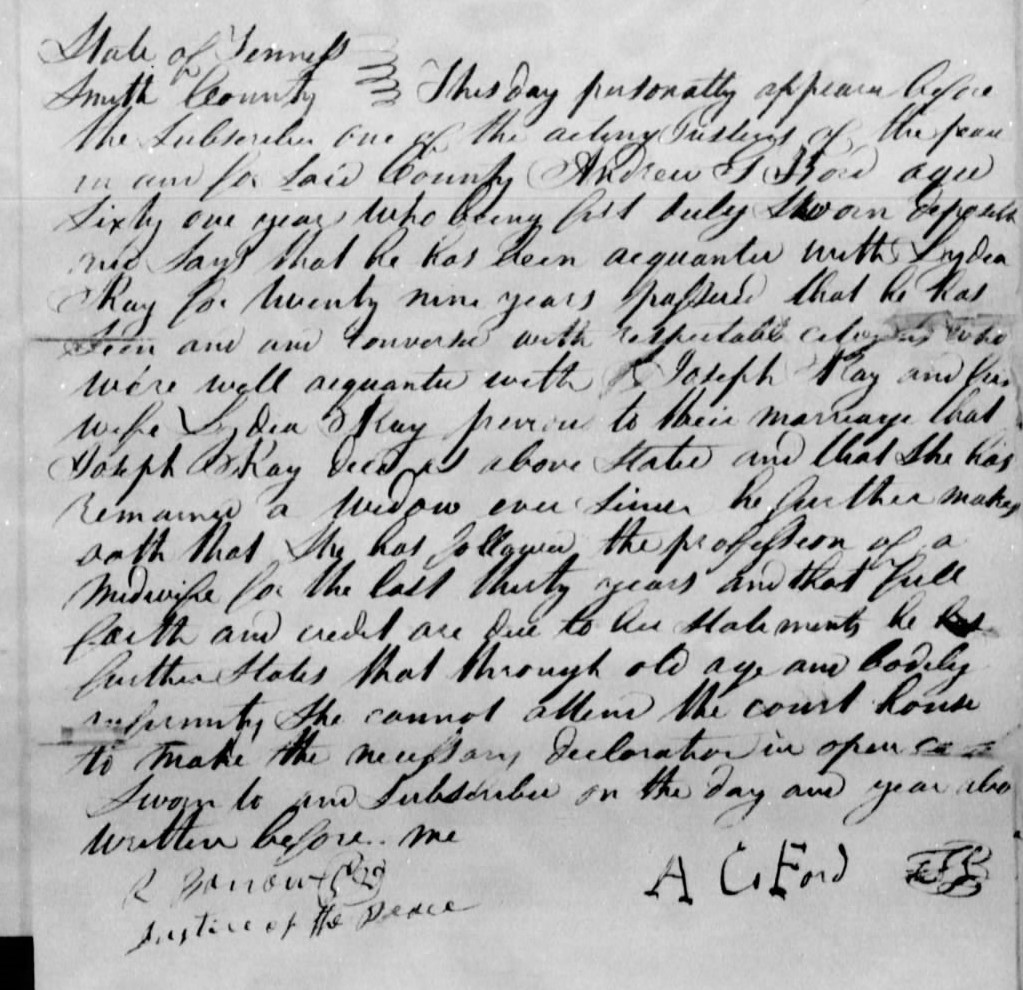 State of Tenness
Smith County This day personatly appeara before
the Subscriber one of the acting Justices of the peace
in and for Said County Andrew Ford aged
Sixty one year who being first duly Sworn deposeth
and Says that he has been acquanted with Lydea
Ray for twenty nine years passed that he has
Seen and and converse with respectable citizens who
were well acquanted with Joseph Ray and his
wife Lydea Ray previous to their marriage that
Joseph Ray Died as above Stated and that She has
remained a widow ever Since he further makes
oath that She has followed the profession of a
midwife for the last thirty years and that full
faith and credit are due to her Statements he
further States that through old age and bodily
infirmity She cannot attend the court house
to make the necessary declaration in open
Sworn to and Subscribed on the day and year abo
written before me
A C Ford
Justice of the Peace